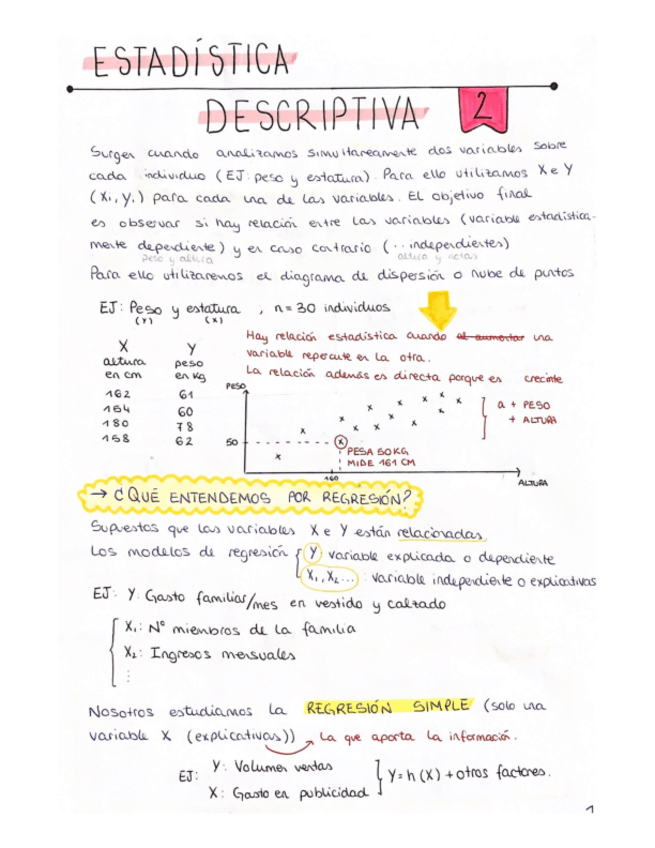 ESTADÍSTICA
DESCRIPTIVA 2
Surgen cuando analizamos simultaneamente dos variables sobre
cada individuo (EJ: peso y estatura). Para ello utilizamos X e Y
(Xi, Yi) para cada una de las variables. El objetivo final
es observar si hay relación entre las variables (variable estadística-
mente dependiente) y en caso contrario (...independientes)
peso y altura altura y notas
Para ello utilizaremos el diagrama de dispersión o nube de puntos
EJ: Peso y estatura , n = 30 individuos
(Y) (X)
Hay relación estadística cuando al aumentar una
variable repercute en la otra.
La relación además es directa porque es creciente
X Y
altura peso
en cm en Kg
162 61
154 60
180 78
158 62
PESO
50
160
ALTURA
PESA 50KG
MIDE 161 CM
a + PESO
+ ALTURA
→ ¿QUÉ ENTENDEMOS POR REGRESIÓN?
Supuestos que las variables X e Y están relacionadas
Los modelos de regresión { Y variable explicada o dependiente
X₁, X₂... : variable independiente o explicativas
EJ: Y: Gasto familiar/mes en vestido y calzado
X₁: Nº miembros de la familia
X₂: Ingresos mensuales
⋮
Nosotros estudiamos la REGRESIÓN SIMPLE (solo una
variable X (explicativas)) → La que aporta la información.
EJ: Y: Volumen ventas
X: Gasto en publicidad
Y = h (X) + otros factores.
1